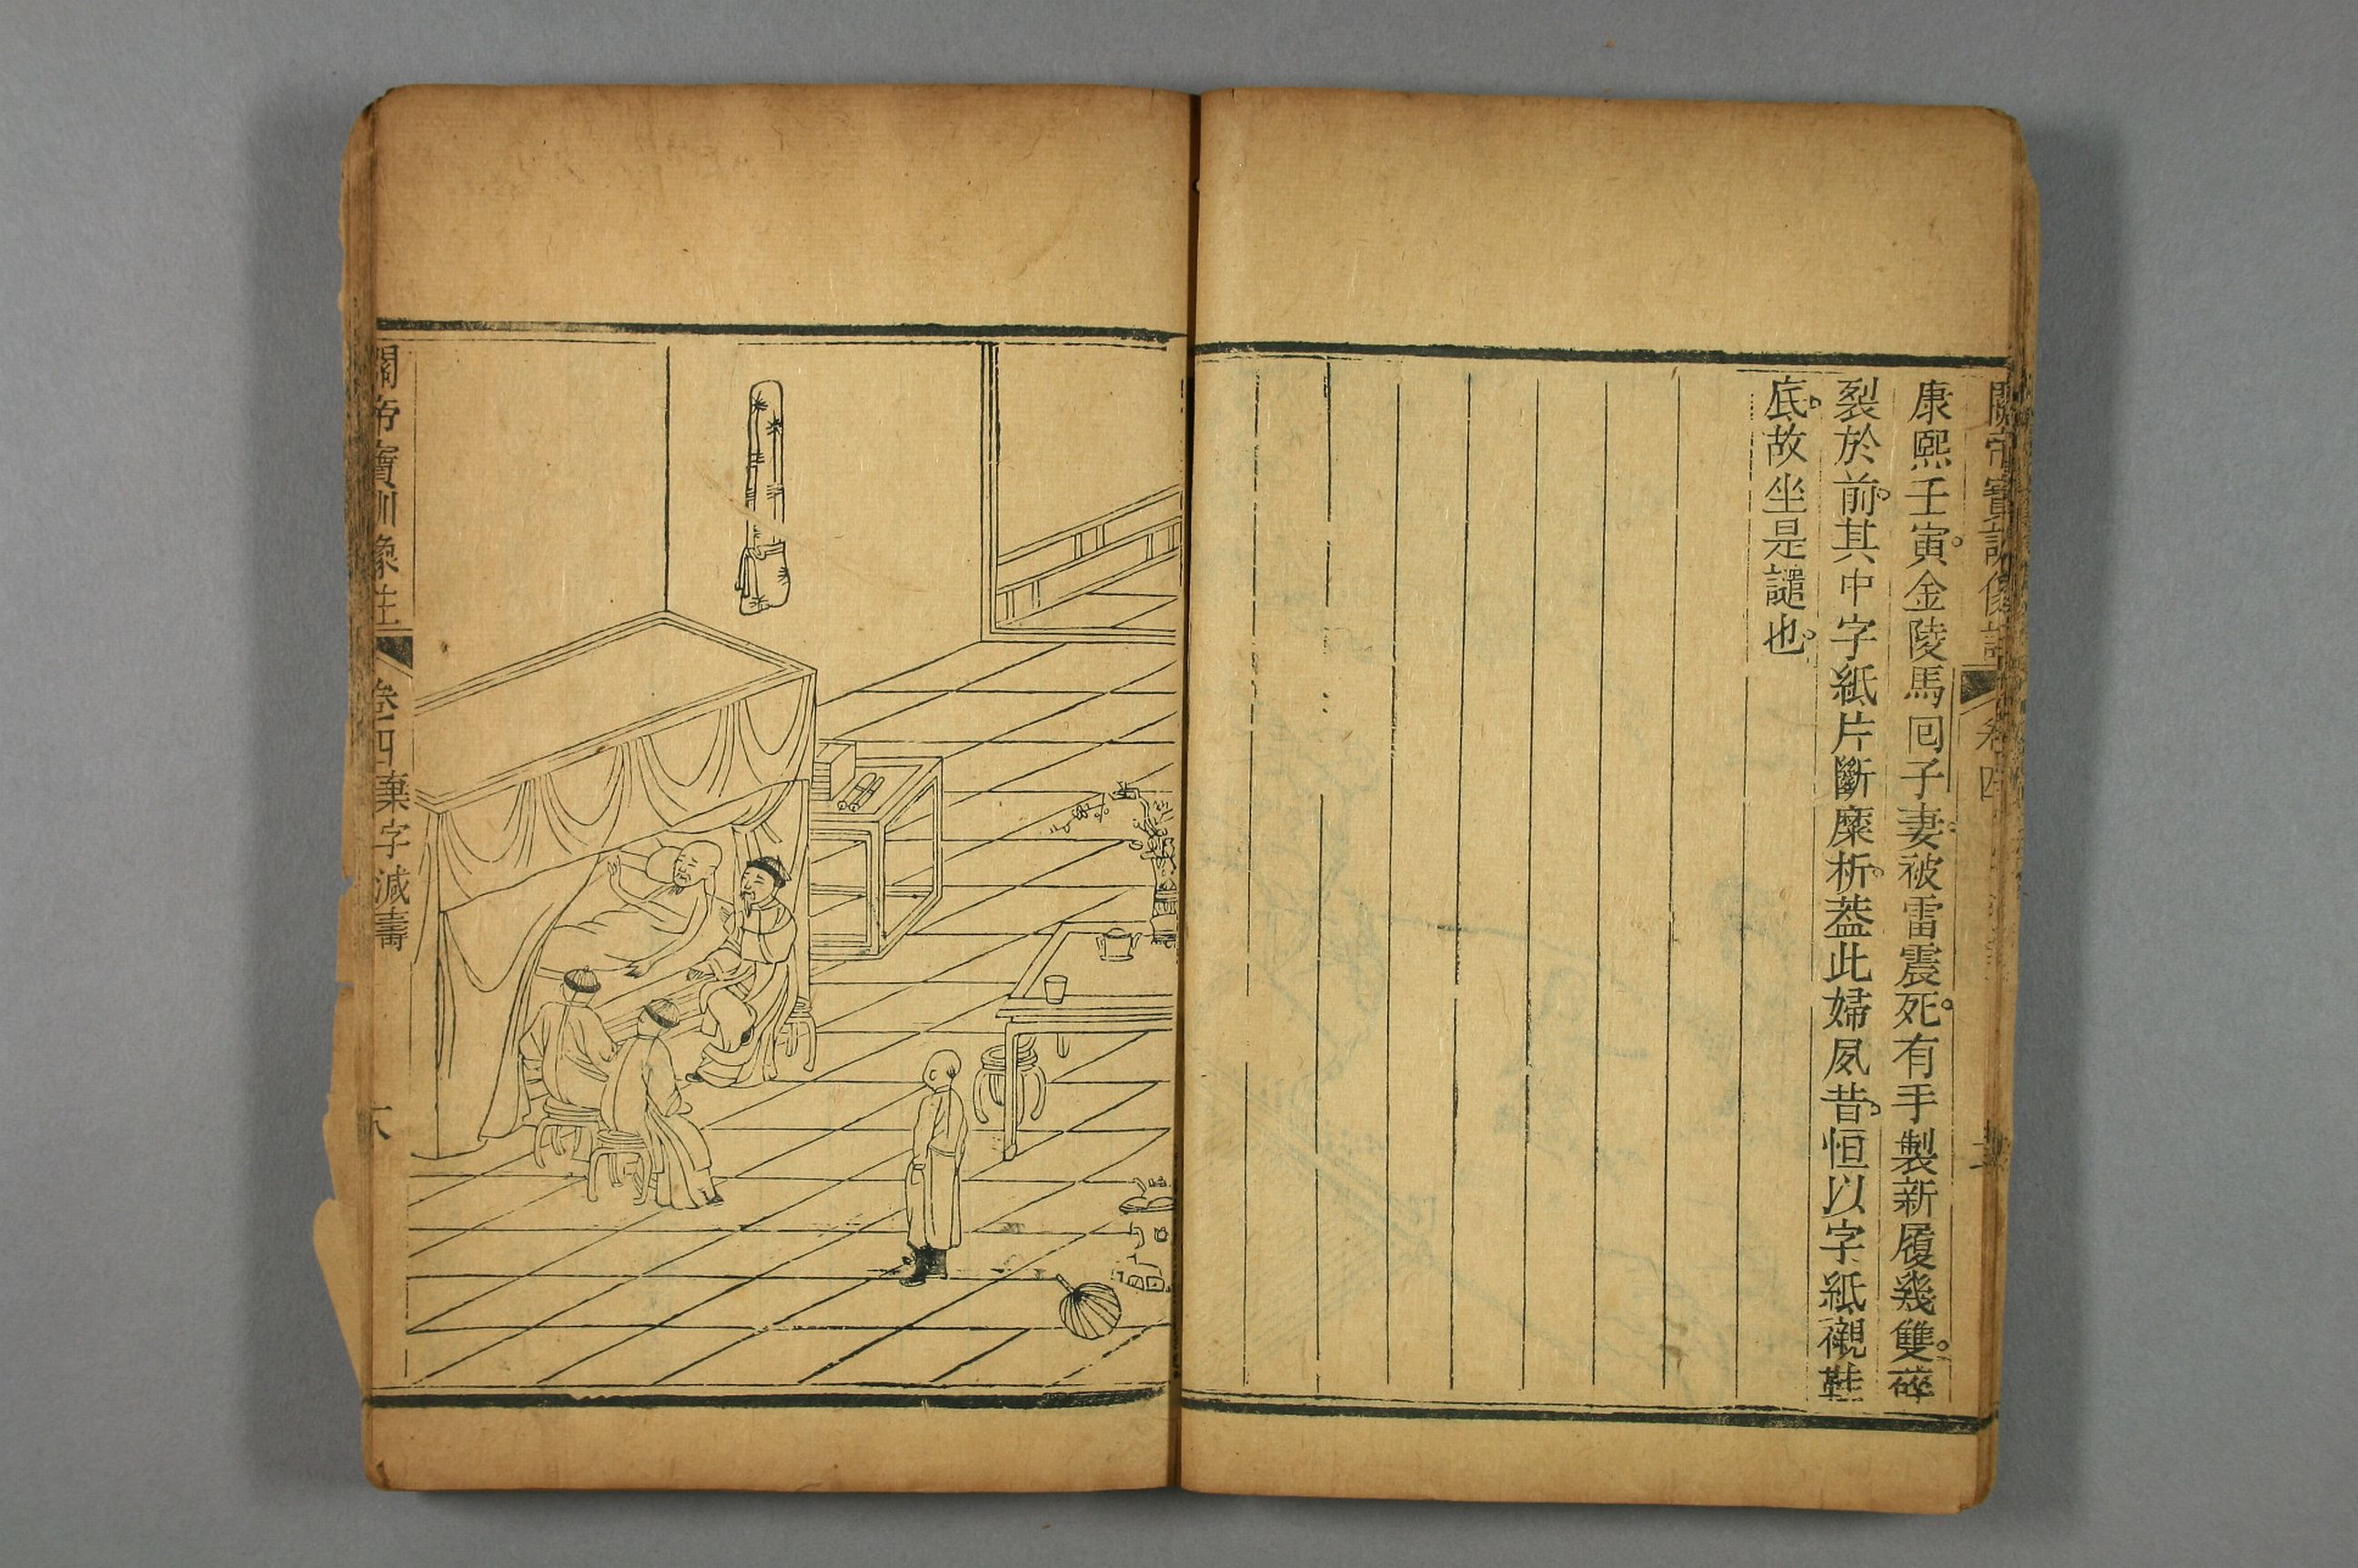 關帝寶訓像註 卷四
康熙壬寅。金陵馬回子妻。被雷震死。有手製新履幾雙。碎
裂於前。其中字紙片斷糜析。葢此婦夙昔。恒以字紙襯鞋
底。故坐是譴也。
關帝寶訓像註 卷四 棄字減壽